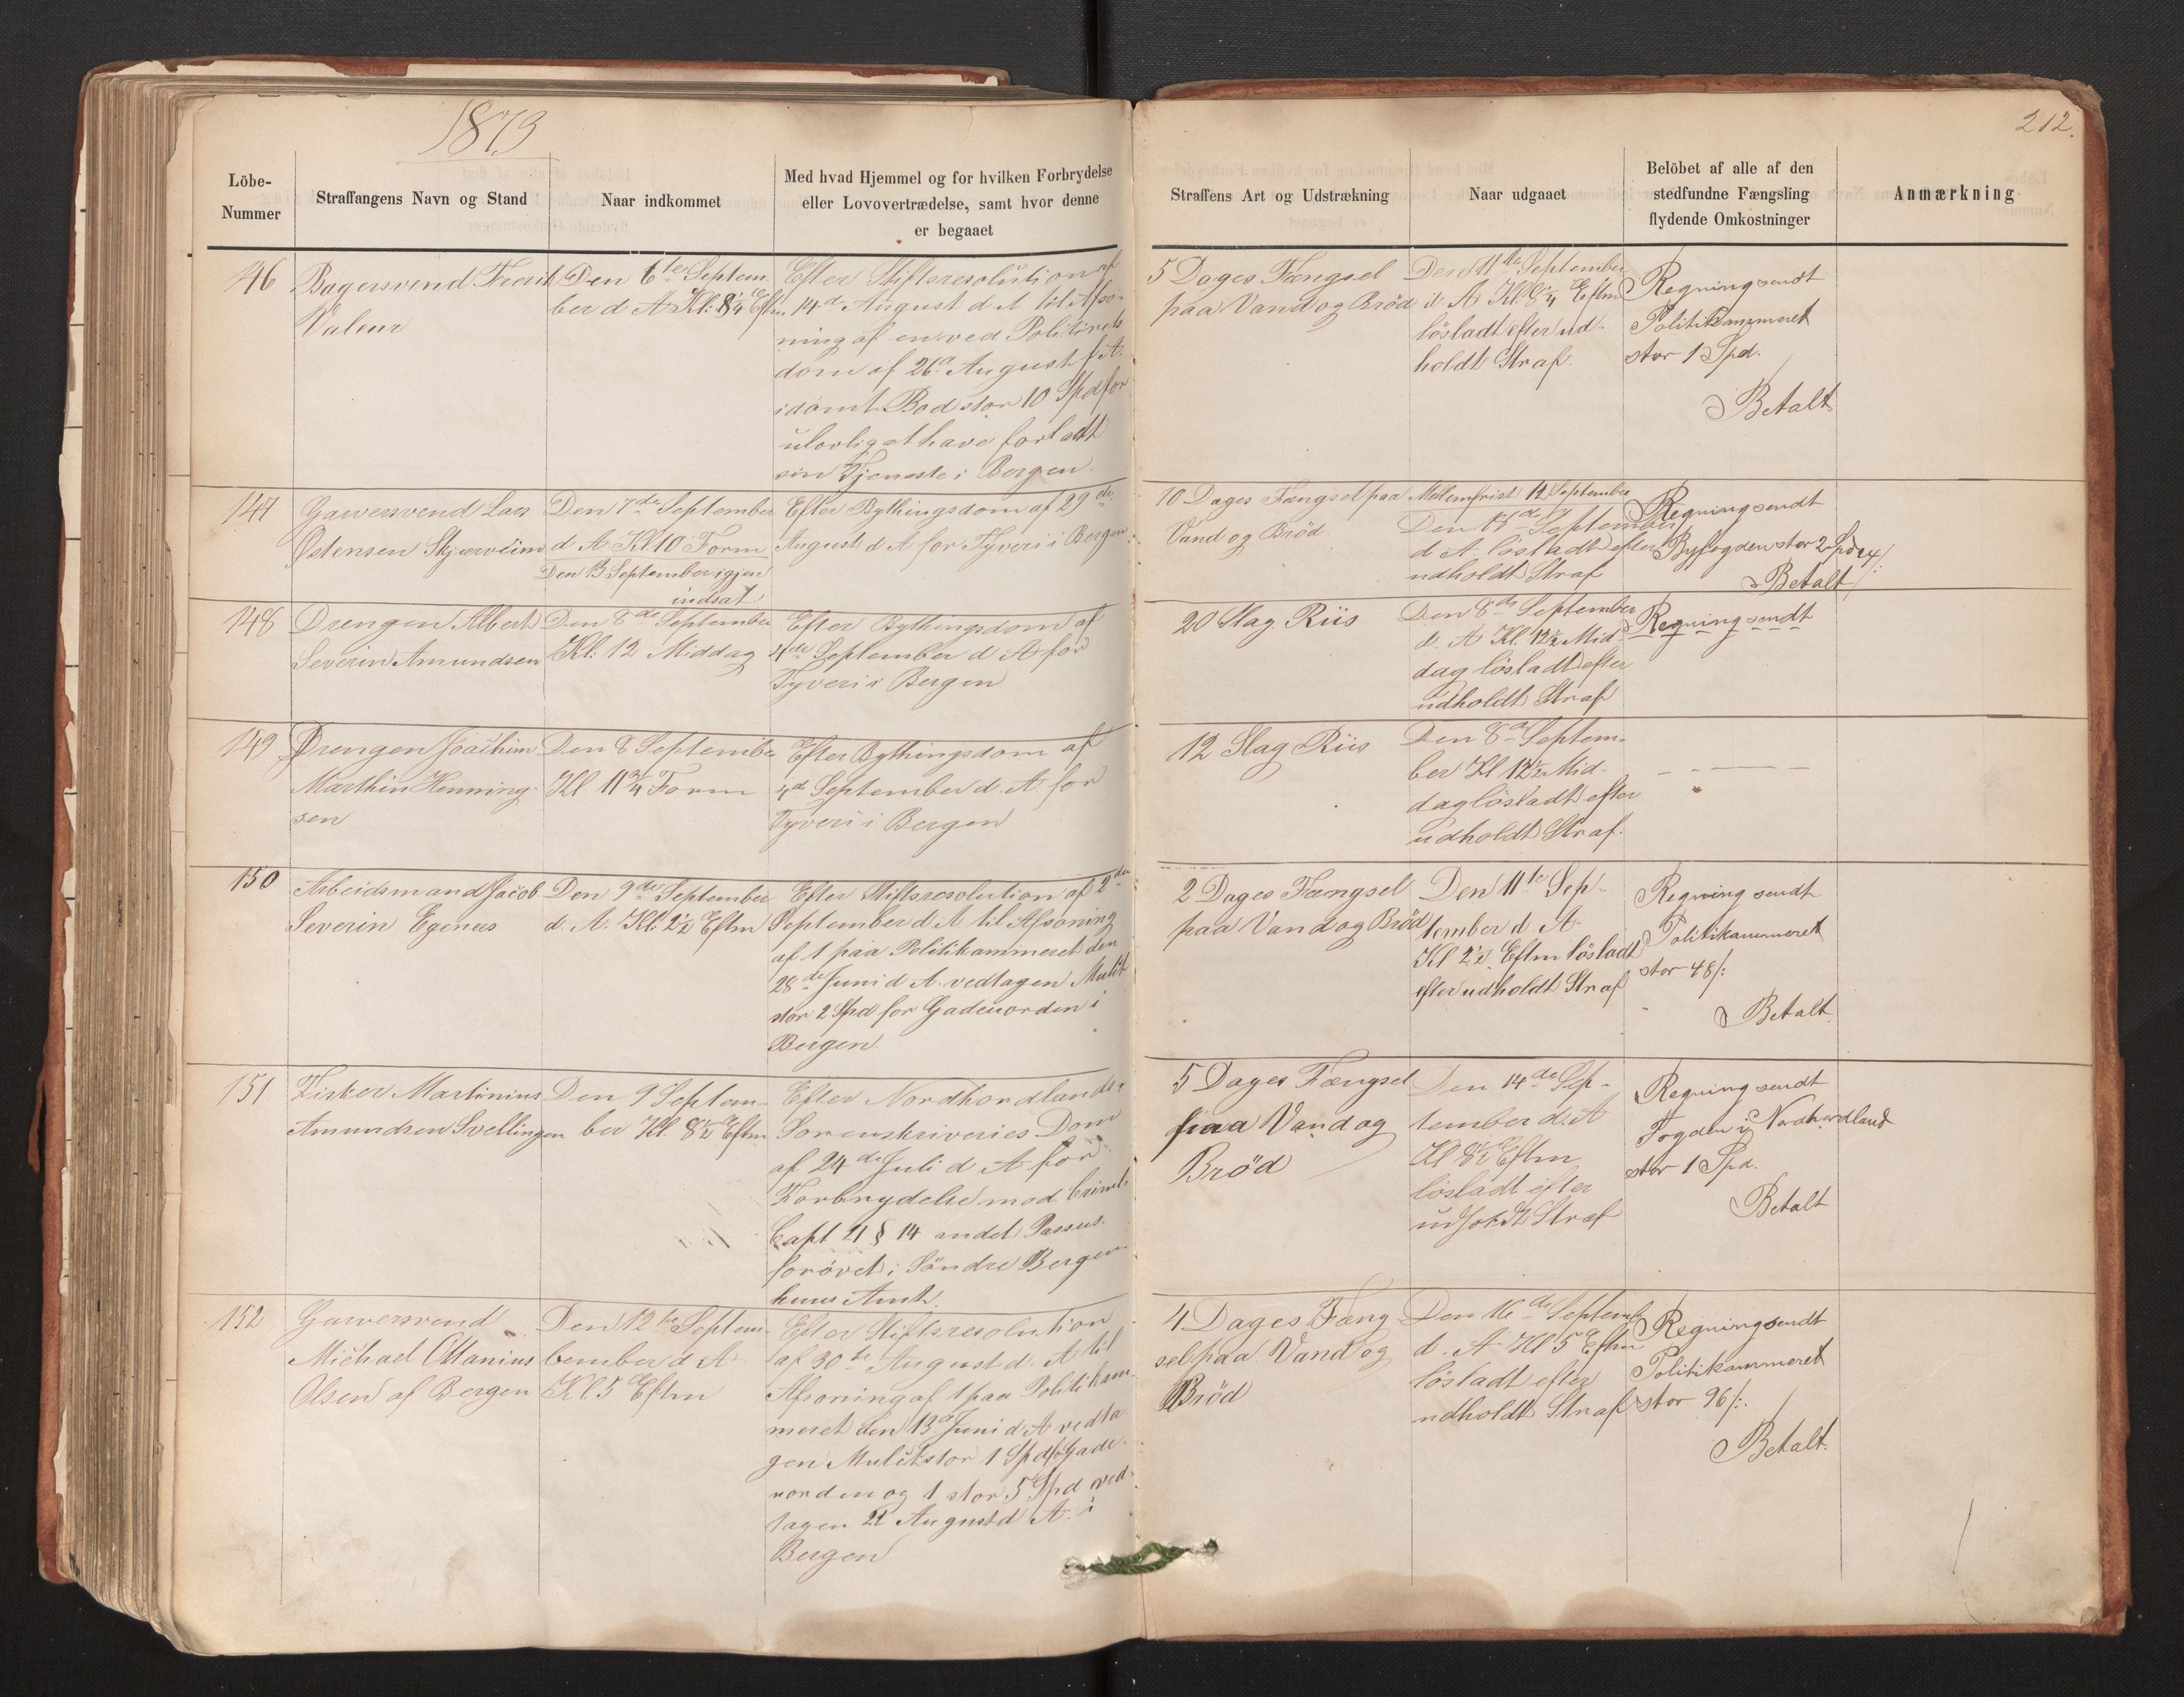 1873
212.
Löbe-
Nummer
Straffangens Navn og Stand
Naar indkommet
Med hvad Hjemmel og for hvilken Forbrydelse
eller Lovovertrædelse, samt hvor denne
er begaaet
Straffens Art og Udstrækning
Naar udgaaet
Belöbet af alle af den
stedfundne Fængsling
flydende Omkostninger
Anmærkning
46
Bagersvend
Valeur
Den 6te Septem
ber d A Kl: 8¼ Eftm
Efter Stiftsresolution af
14d August d A til Afso-
ning af en ved Politirets
dom af 26 August f A.
idömt Bod stor 10 Spd for
ulovlig at have forladt
sin Tjeneste i Bergen.
5 Dages Fængsel
paa Vand og Bröd
Den 11te September
d. A Kl 8¼ Eftm
lösladt efter ud-
holdt Straf.
Regning sendt
Politikammeret
stor 1 Spd.
Betalt
147
Garversvend Lars
Ostensen Skjerveim
Den 7de September
d A Kl 10 Form
Den 13 September igjen
indsat
Efter Bythingsdom af 29de
August d A for Tyveri i Bergen.
10 Dages Fængsel paa
Vand og Bröd
Mellemfrist 12 September
Den 18de September
d A lösladt efter
udholdt Straf
Regning sendt
Byfogden stor 2 Spd 24/:
Betalt
148
Drengen Albert
Severin Amundsen
Den 8de September
Kl: 12 Middag
Efter Bythingsdom af
4de September d A for
Tyveri i Bergen
20 Slag Riis
Den 8de September
d. A Kl. 12½ Mid-
dag lösladt efter
udholdt Straf
Regning sendt
149
Drengen Joachim
Marthin Henning-
sen
Den 8 Septembe
Kl 11¾ Form
Efter Bythingsdom af
4de September d. A for
Tyveri i Bergen
12 Slag Riis
Den 8de Septem-
ber Kl 12½ Mid-
dag lösladt efter
udholdt Straf.
150
Arbeidsmand Jacob
Severin Egenes
Den 9de September
d. A. Kl: 2½ Eftm
Efter Stiftsresolution af 2den
September d A til Afsoning
af 1 paa Politikammeret den
28de Juni d A. vedtagen Mulct
stor 2 Spd for Gadeuorden i
Bergen.
2 Dages Fængsel
paa Vand og Bröd
Den 11te Sep-
tember d. A.
Kl 2½ Eftm lösladt
efter udholdt Straf
Regning sendt
Politikammeret
stor 48/:
Betalt.
151
Fisker Martinius
Amundsen Svellingen
Den 9 Septem-
ber Kl. 8½ Eftm
Efter Nordhordlands
Sorenskriveries Dom
af 24de Juli d A for
Forbrydelse mod Criml.
Capt 21 § 14 andet Passus.
forövet i Söndre Bergen
huus Amt.
5 Dages Fængsel
paa Vand og
Bröd
Den 14de Sep-
tember d. A
Kl 8½ Eftm
lösladt efter
udholdt Straf
Regning sendt
Fogden i Nordhordland
stor 1 Spd.
Betalt
152
Garversvend
Michael Ottanius
Olsen af Bergen
Den 12te Septem-
bember d A
Kl. 5 Eftm
Efter Stiftsresolution
af 30te August d. A til
Afsoning af 1 paa Politikam
meret den 13de Juni d A vedta
gen Mulct stor 1 Spd f Gade-
uorden og 1 stor 5 Spd ved-
tagen 21 August d A. i
Bergen
4 Dages Fæng
sel paa Vand og
Bröd
Den 16de Septemb
d. A Kl 5 Eftm
lösladt efter
udholdt Straf
Regning sendt
Politikammeret
stor 96/:
Betalt.